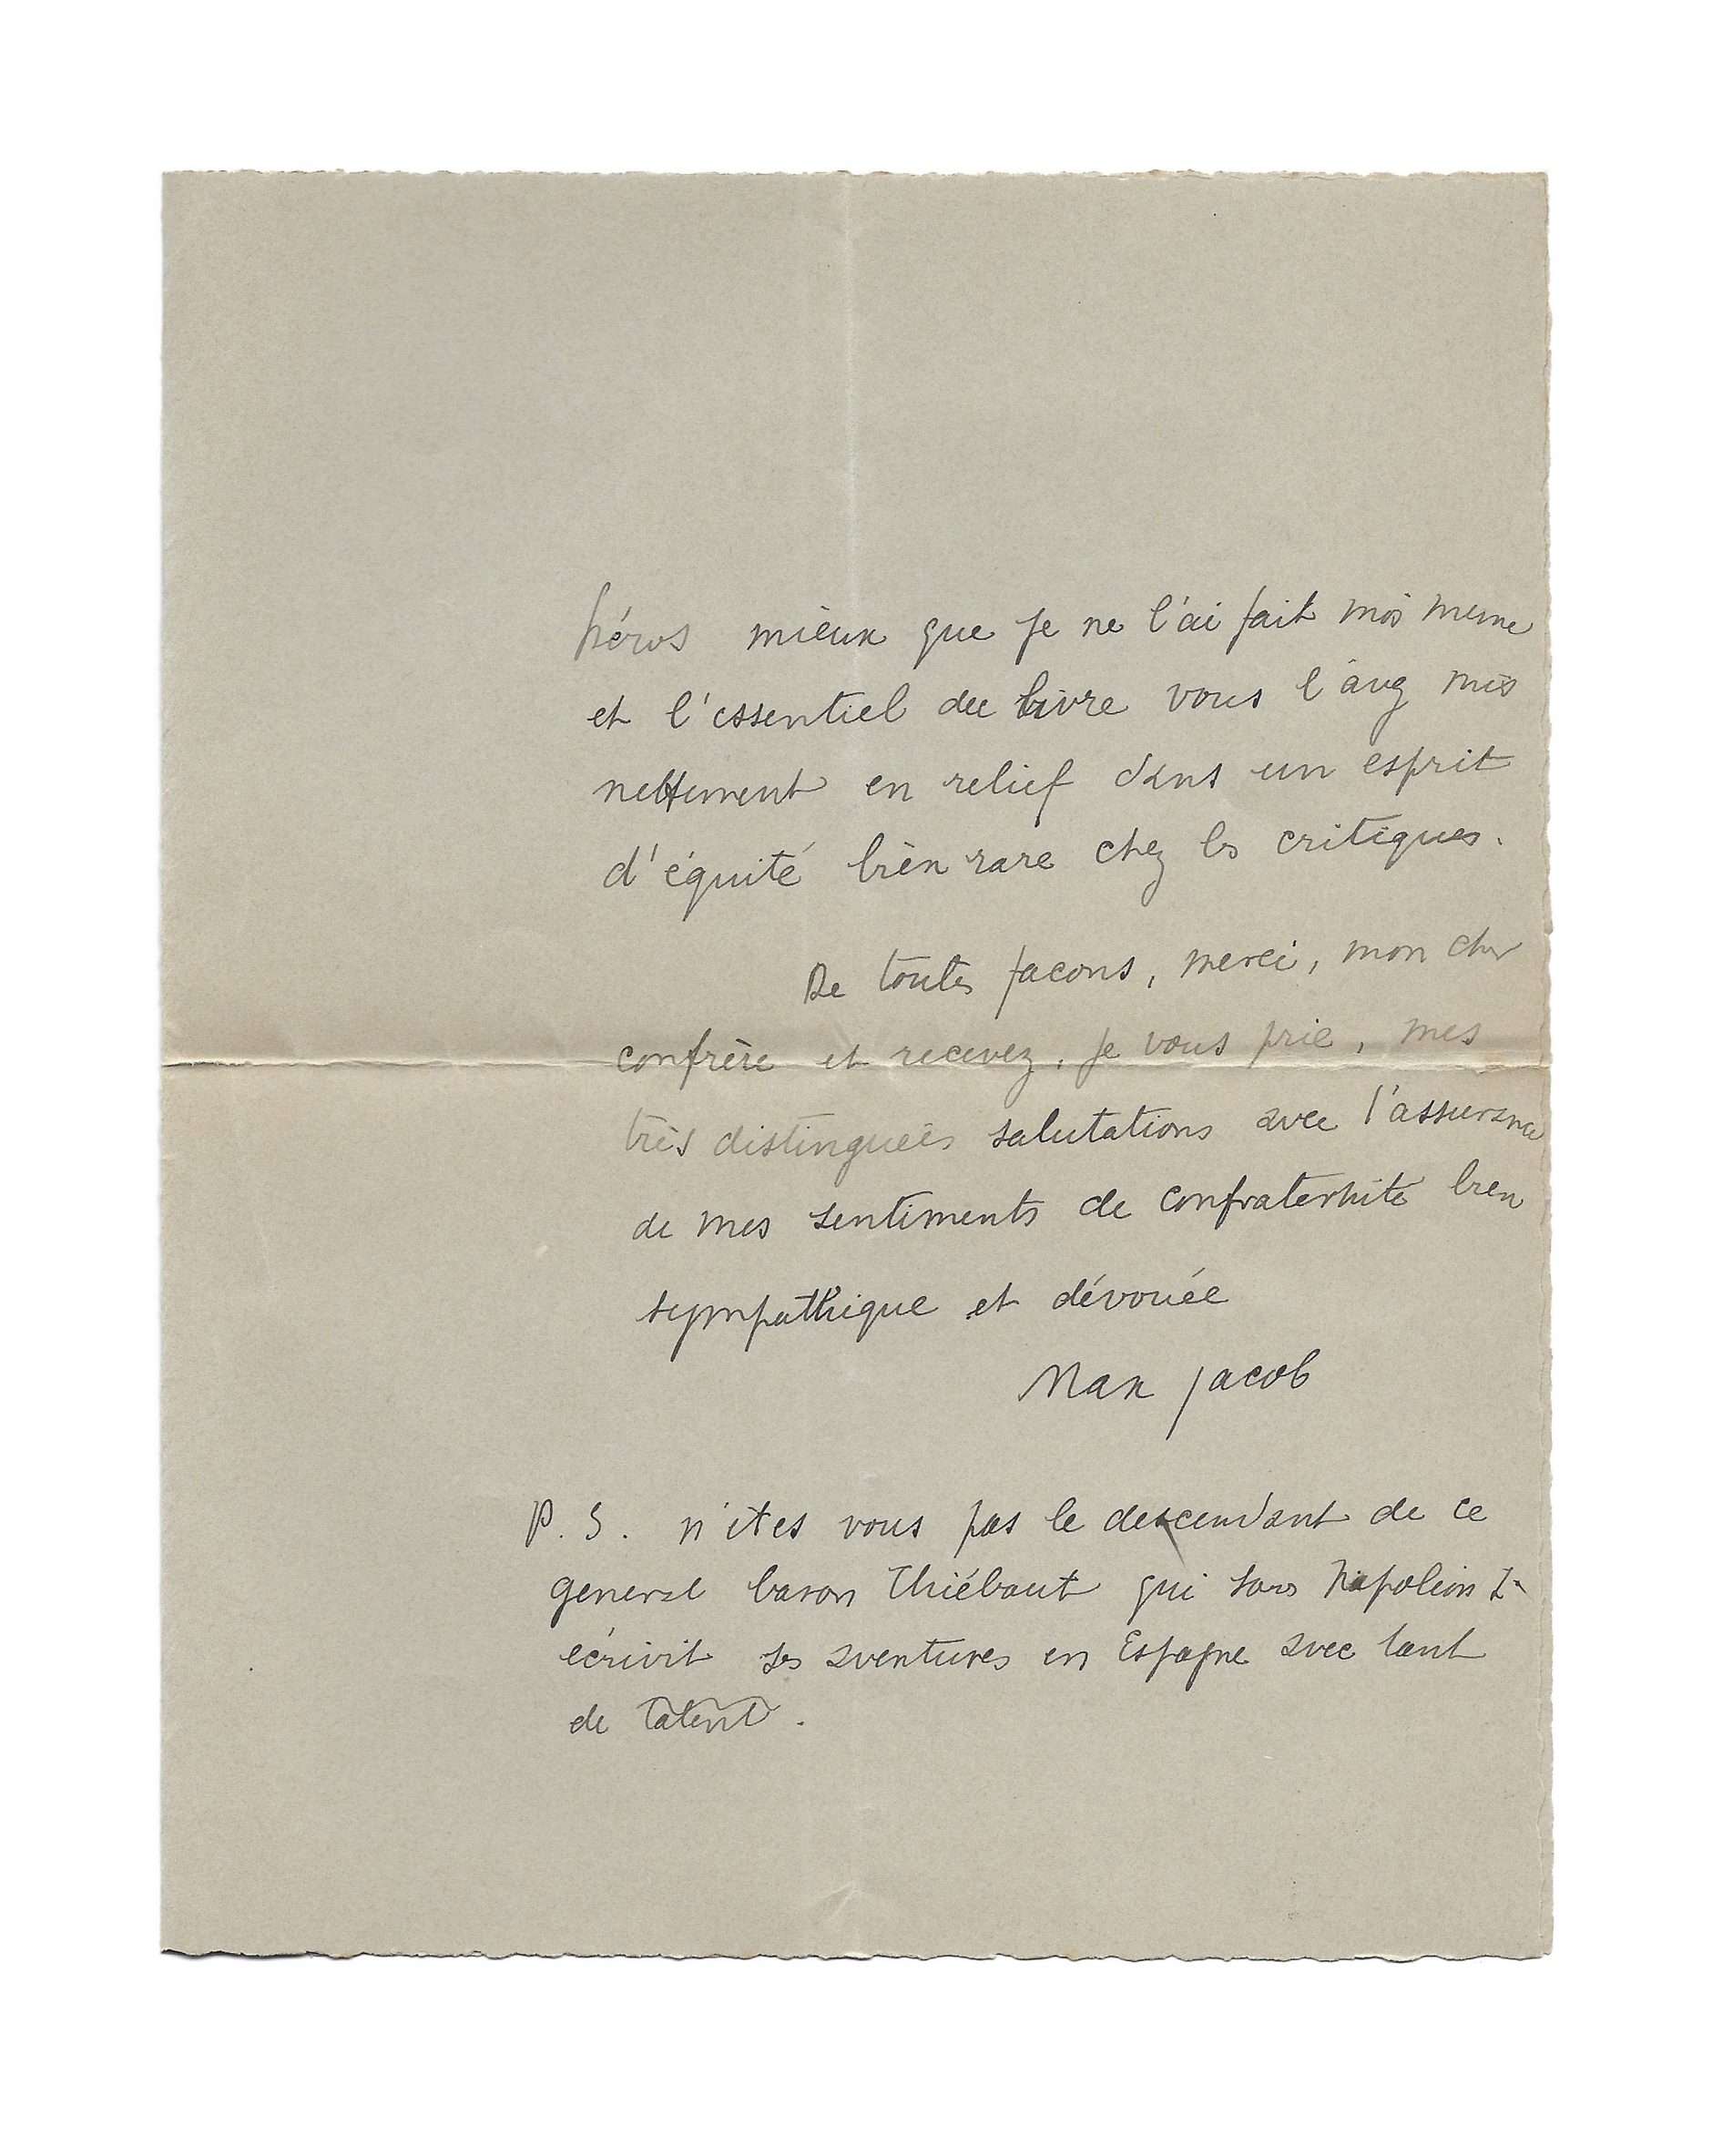 héros mieux que je ne l'ai fait moi meme
et l'essentiel du livre vous l'avez mis
nettement en relief dans un esprit
d'équité bien rare chez les critiques.
De toutes facons, merci, mon cher
confrère et recevez, je vous prie, mes
très distinguées salutations avec l'assurance
de mes sentiments de confraternité bien
sympathique et dévouée
Max Jacob
P.S. n'êtes vous pas le descendant de ce
general baron Thiébaut qui sous Napoléon Ier
écrivit ses aventures en Espagne avec tant
de talent.